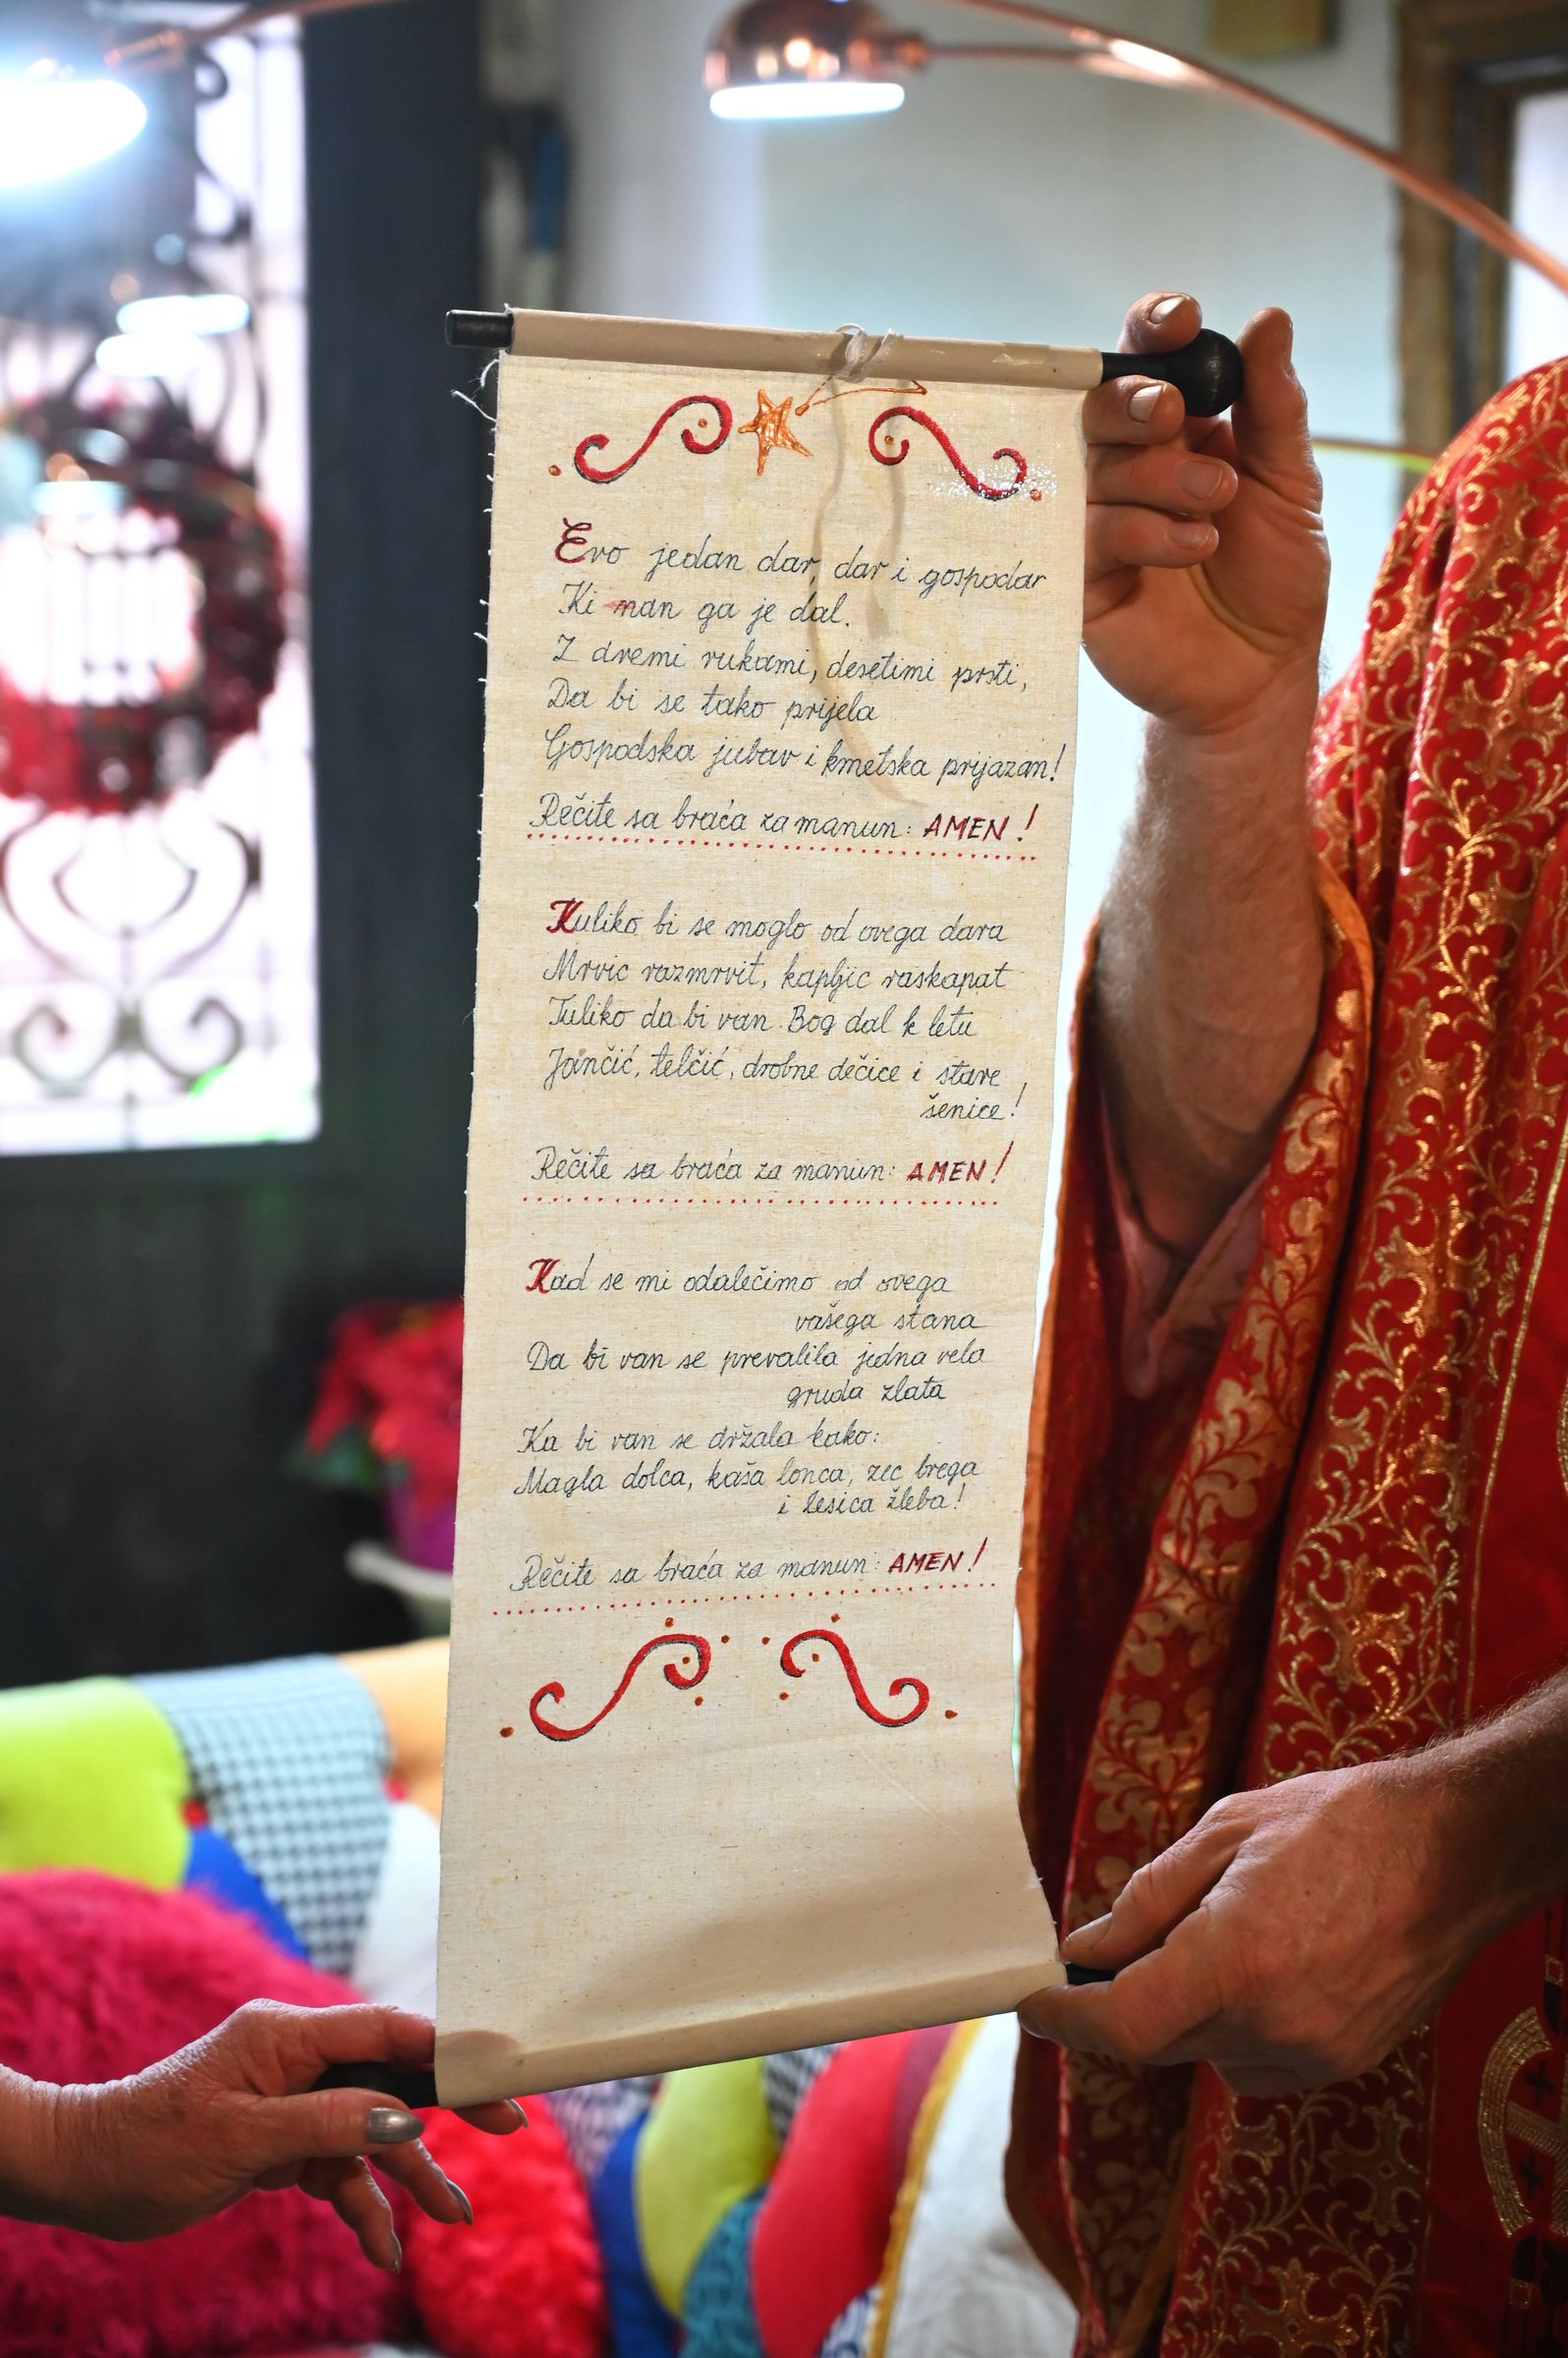 Evo jedan dar, dar i gospodar
Ki man ga je dal.
Z dvemi rukami, desetimi prsti,
Da bi se tako prijela
Gospodska jubav i kmetska prijazan!
Rečite sa braća za manun: AMEN!
Kuliko bi se moglo od ovega dara
Mrvic razmrvit, kapljic raskapat
Tuliko da bi van Bog dal k letu
Jančić, telčić, drobne dečice i stare
šenice!
Rečite sa braća za manun: AMEN!
Kad se mi odalečimo od ovega
vašega stana
Da bi van se prevalila jedna vela
gruda zlata
Ka bi van se držala kako:
Magla dolca, kaša lonca, zec brega
i lesica žleba!
Rečite sa braća za manun: AMEN!